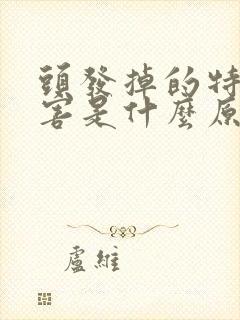 頭發掉的特
害是什麼原
盧維